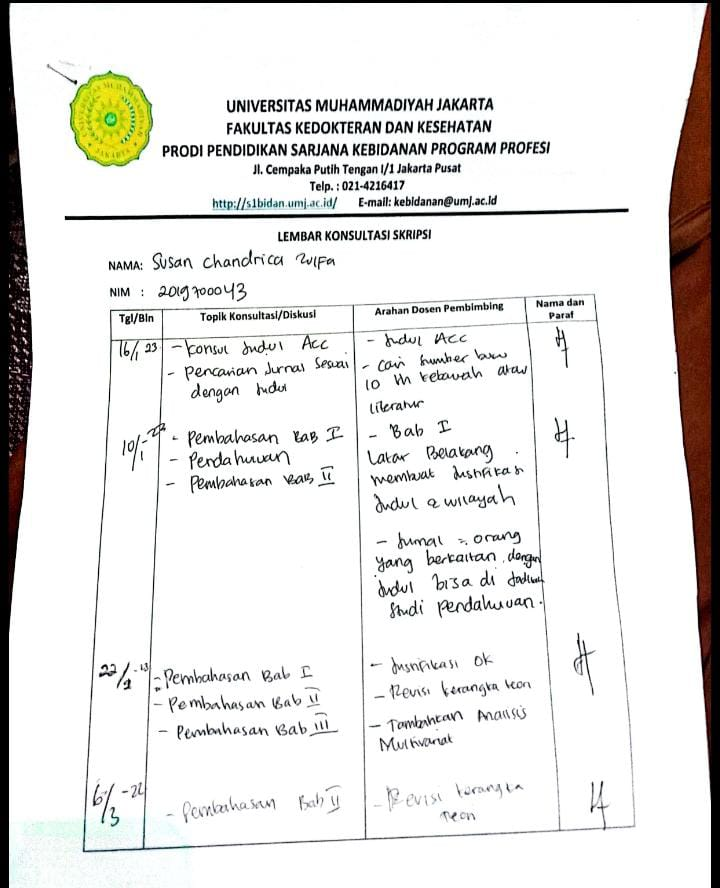 UNIVERSITAS MUHAMMADIYAH JAKARTA
FAKULTAS KEDOKTERAN DAN KESEHATAN
PRODI PENDIDIKAN SARJANA KEBIDANAN PROGRAM PROFESI
Jl. Cempaka Putih Tengan I/1 Jakarta Pusat
Telp. : 021-4216417
http://s1bidan.umj.ac.id/ E-mail: kebidanan@umj.ac.id
LEMBAR KONSULTASI SKRIPSI
NAMA: Susan Chandrica Zulfa
NIM : 2019700043
Tgl/Bln
Topik Konsultasi/Diskusi
Arahan Dosen Pembimbing
Nama dan
Paraf
16/1 23
- Konsul Judul Acc
- Pencarian Jurnal Sesuai
dengan Judul
- Judul ACC
- Cari Sumber baru
10 th kebawah atau
literatur
10/1
- Pembahasan BAB I
- Pendahuluan
- Pembahasan BAB II
- Bab I
Latar Belakang
membuat Justifikasi
Judul & wilayah
- Jurnal : orang
yang berkaitan dengan
Judul bisa di Jadikan
Studi Pendahuluan.
22/
- Pembahasan Bab I
- Pembahasan Bab II
- Pembahasan Bab III
- Justifikasi OK
- Revisi kerangka teori
- Tambahkan Analisis
Multivariat
6/3
- Pembahasan Bab II
- Revisi kerangka
teori